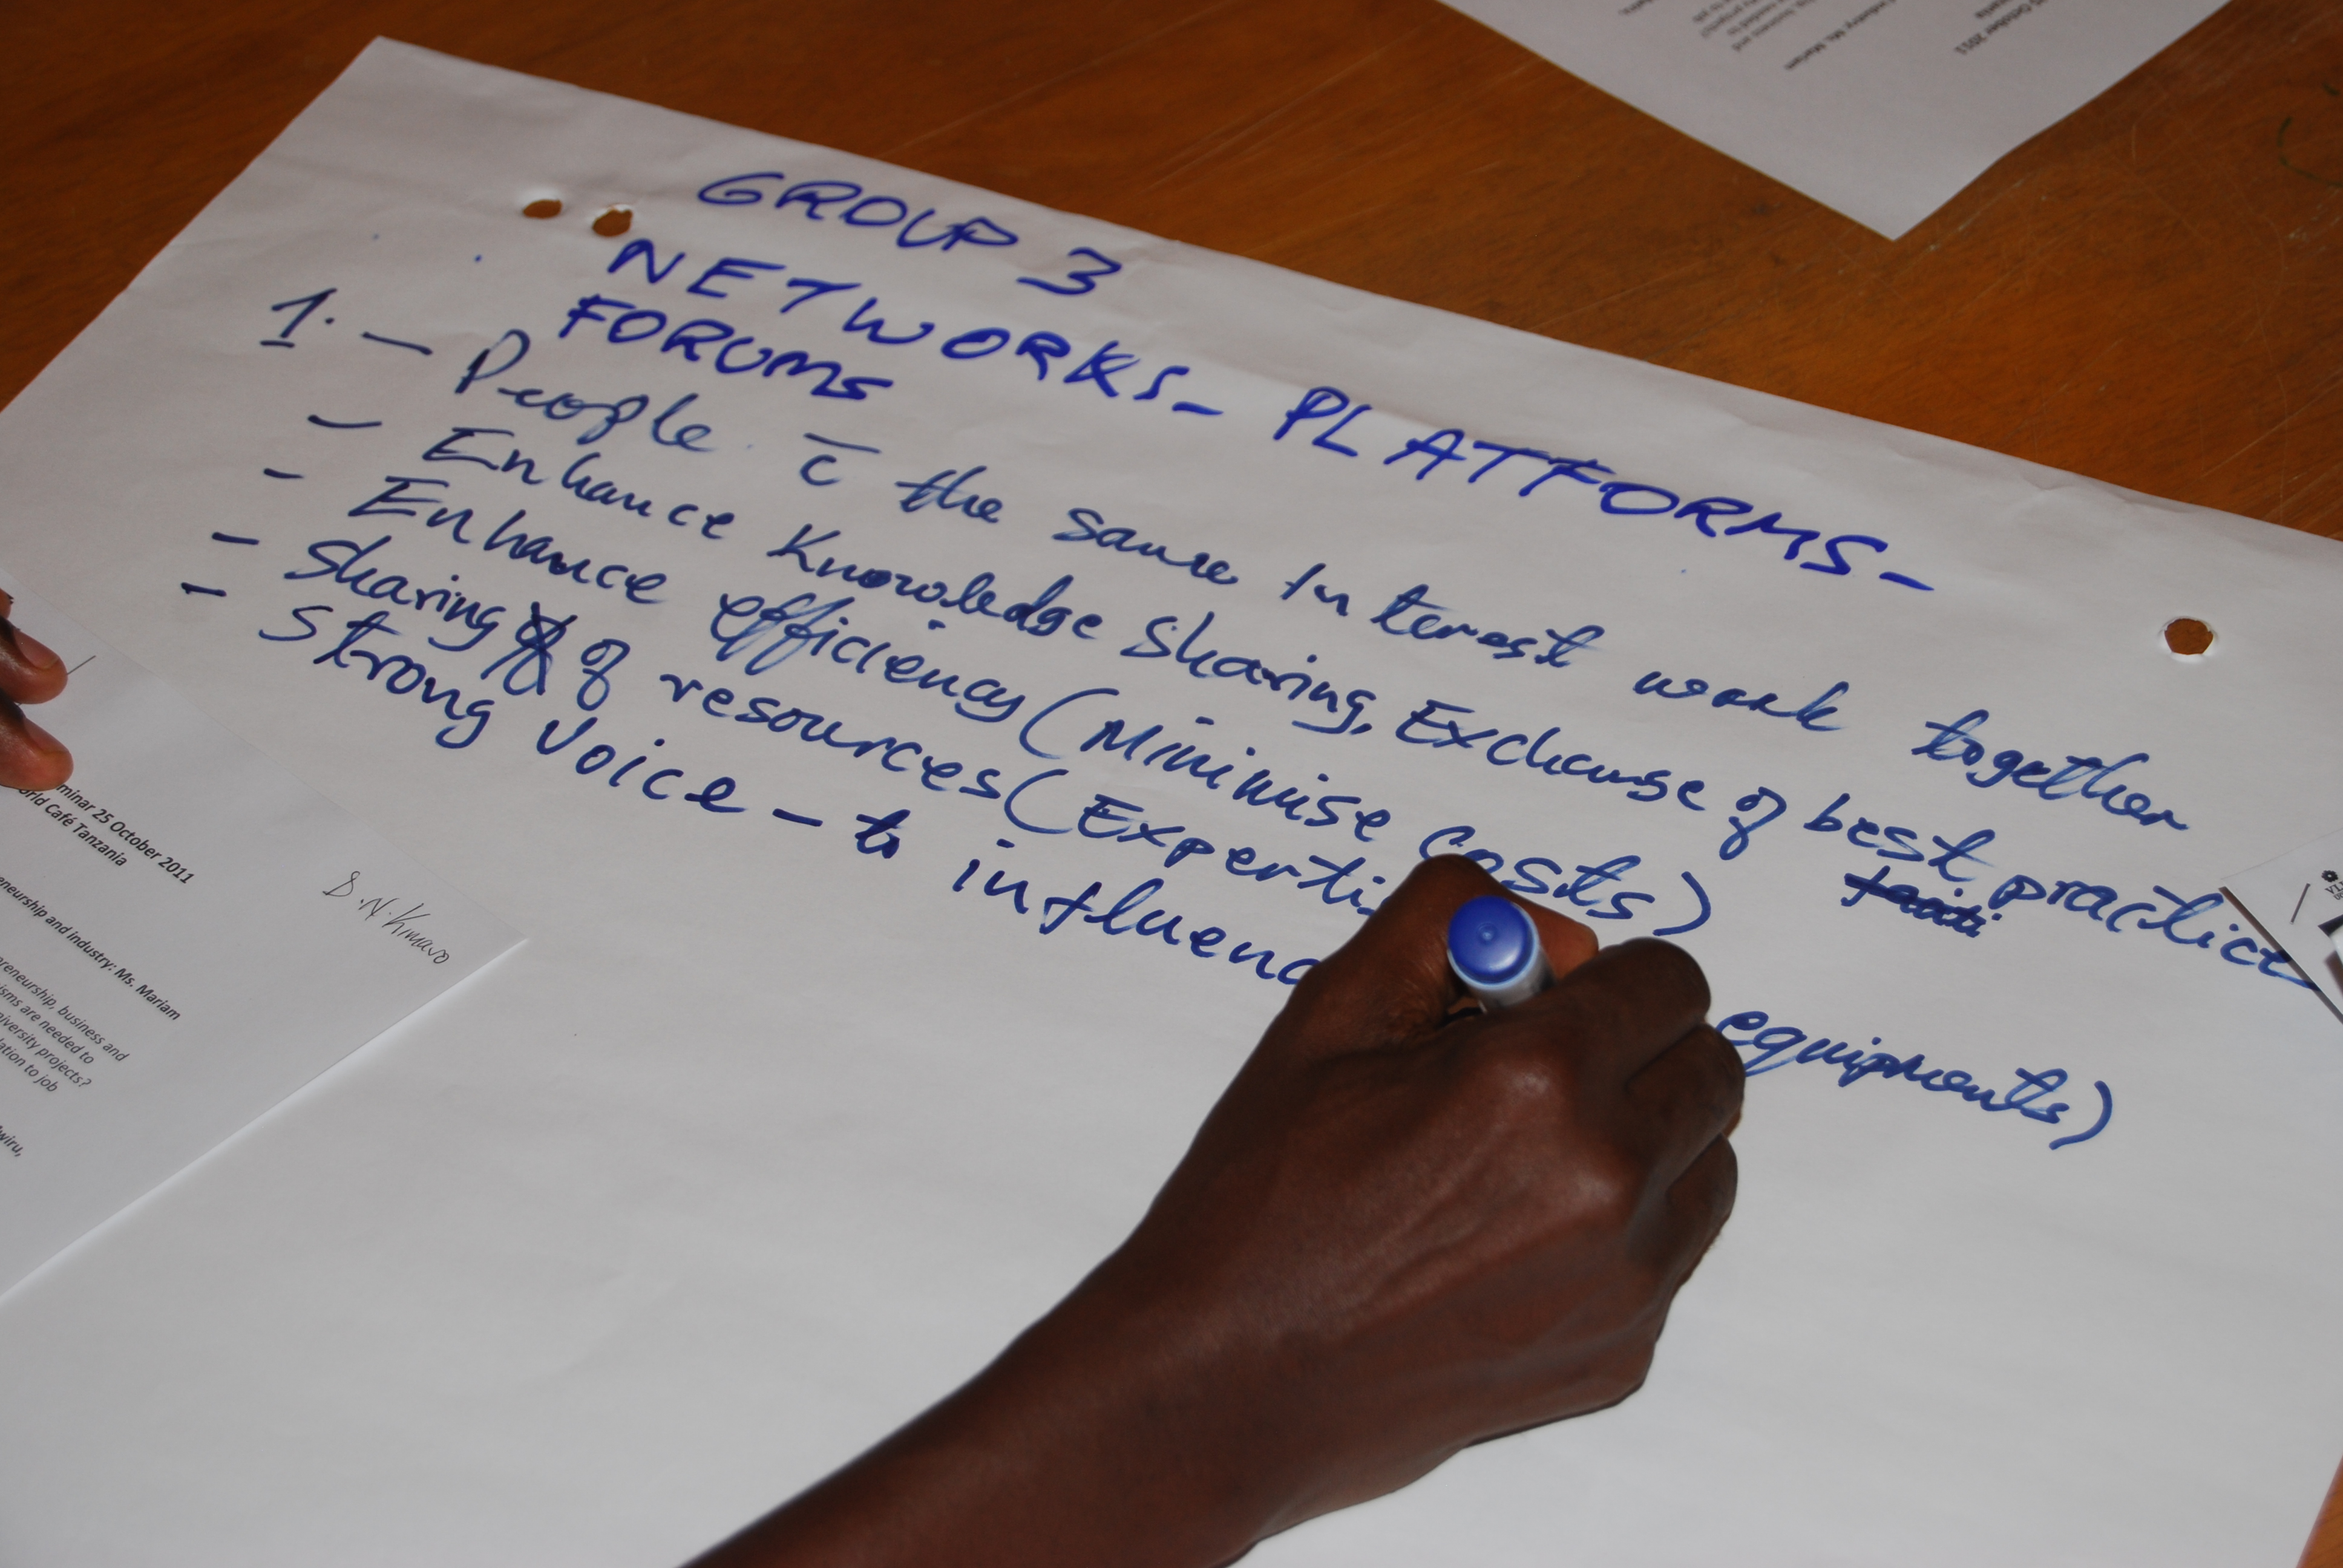 GROUP 3
NETWORKS - PLATFORMS -
FORUMS
1. - People c̄ the same interest work together
- Enhance Knowledge sharing, Exchange of best practice
- Enhance efficiency (Minimise costs)
- Sharing of resources (Experti equipments)
- Strong Voice - to influenc
minar 25 October 2011
orld Café Tanzania
D.N. Kimaro
eneurship and industry: Ms. Mariam
preneurship, business and
isms are needed to
niversity projects?
lation to job
wiru,
October 2011
industry: Ms. Mariam